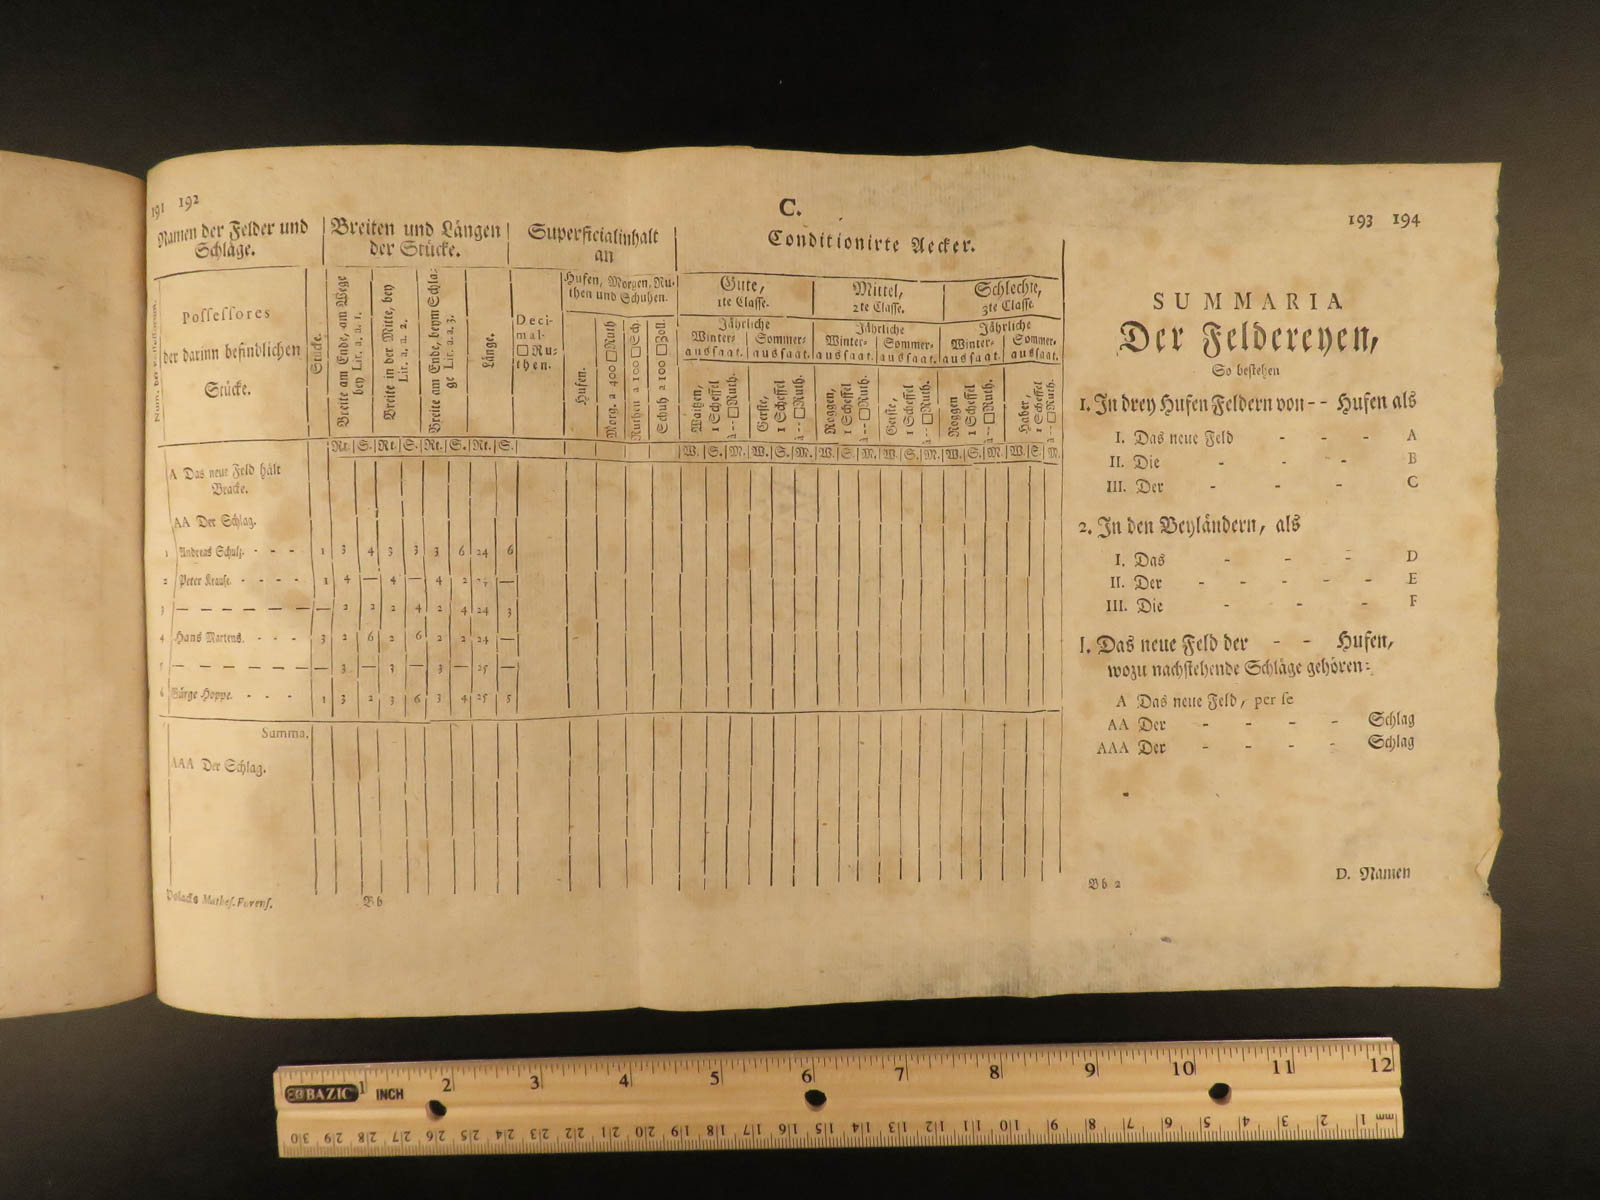 191 192
C.
193 194
Namen der Felder und
Schläge.
Breiten und Längen
der Stücke.
Superficialinhalt
an
Conditionirte Aecker.
Num. der Possessorum.
Possessores
der darinn befindlichen
Stücke.
Stücke.
Breite am Ende, am Wege
bey Lit. a. a. 1.
Breite in der Mitte, bey
Lit. a. a. 2.
Breite am Ende, beym Schla-
ge Lit. a. a. 3.
Länge.
Deci-
mal-
□Ru-
then.
Hufen, Morgen, Ru-
then und Schuhen.
Hufen.
Morg. a 400 □Ruth
Ruthen a 100 □Sch.
Schuh a 100 □Zoll.
Gute,
1te Classe.
Mittel,
2te Classe.
Schlechte,
3te Classe.
Jährliche
Winter- Sommer-
aussaat. aussaat.
Jährliche
Winter- Sommer-
aussaat. aussaat.
Jährliche
Winter- Sommer-
aussaat. aussaat.
Waitzen,
1 Scheffel
à -- □Ruth.
Gerste,
1 Scheffel
à -- □Ruth.
Roggen,
1 Scheffel
à -- □Ruth.
Gerste,
1 Scheffel
à -- □Ruth.
Roggen
1 Scheffel
à -- □Ruth.
Haber,
1 Scheffel
à -- □Ruth.
Rt. S. Rt. S. Rt. S. Rt. S.
W. S. M. W. S. M. W. S. M. W. S. M. W. S. M. W. S. M.
A Das neue Feld hält
Bracke.
AA Der Schlag.
1 Andreas Schulz. - - - 1 3 4 3 3 3 6 24 6
2 Peter Krause. - - - - 1 4 — 4 — 4 2 —
3 — — — — — — 2 2 2 4 2 4 24 3
4 Hans Martens. - - - 3 2 6 2 6 2 2 24 —
5 — — — — — — 3 — 3 — 3 — 25 —
6 Gürge Hoppe. - - - 1 3 2 3 6 3 4 25 5
Summa.
AAA Der Schlag.
Polacks Mathes. Forens.
Bb
SUMMARIA
Der Feldereyen,
So bestehen
1. In drey Hufen Feldern von -- Hufen als
I. Das neue Feld - - - A
II. Die - - - B
III. Der - - - C
2. In den Beyländern, als
I. Das - - - D
II. Der - - - - - E
III. Die - - - F
I. Das neue Feld der - - Hufen,
wozu nachstehende Schläge gehören:
A Das neue Feld, per se
AA Der - - - - Schlag
AAA Der - - - - Schlag
Bb 2
D. Namen
BAZIC
INCH
1 2 3 4 5 6 7 8 9 10 11 12
30 29 28 27 26 25 24 23 22 21 20 19 18 17 16 15 14 13 12 11 10 9 8 7 6 5 4 3 2 1 mm